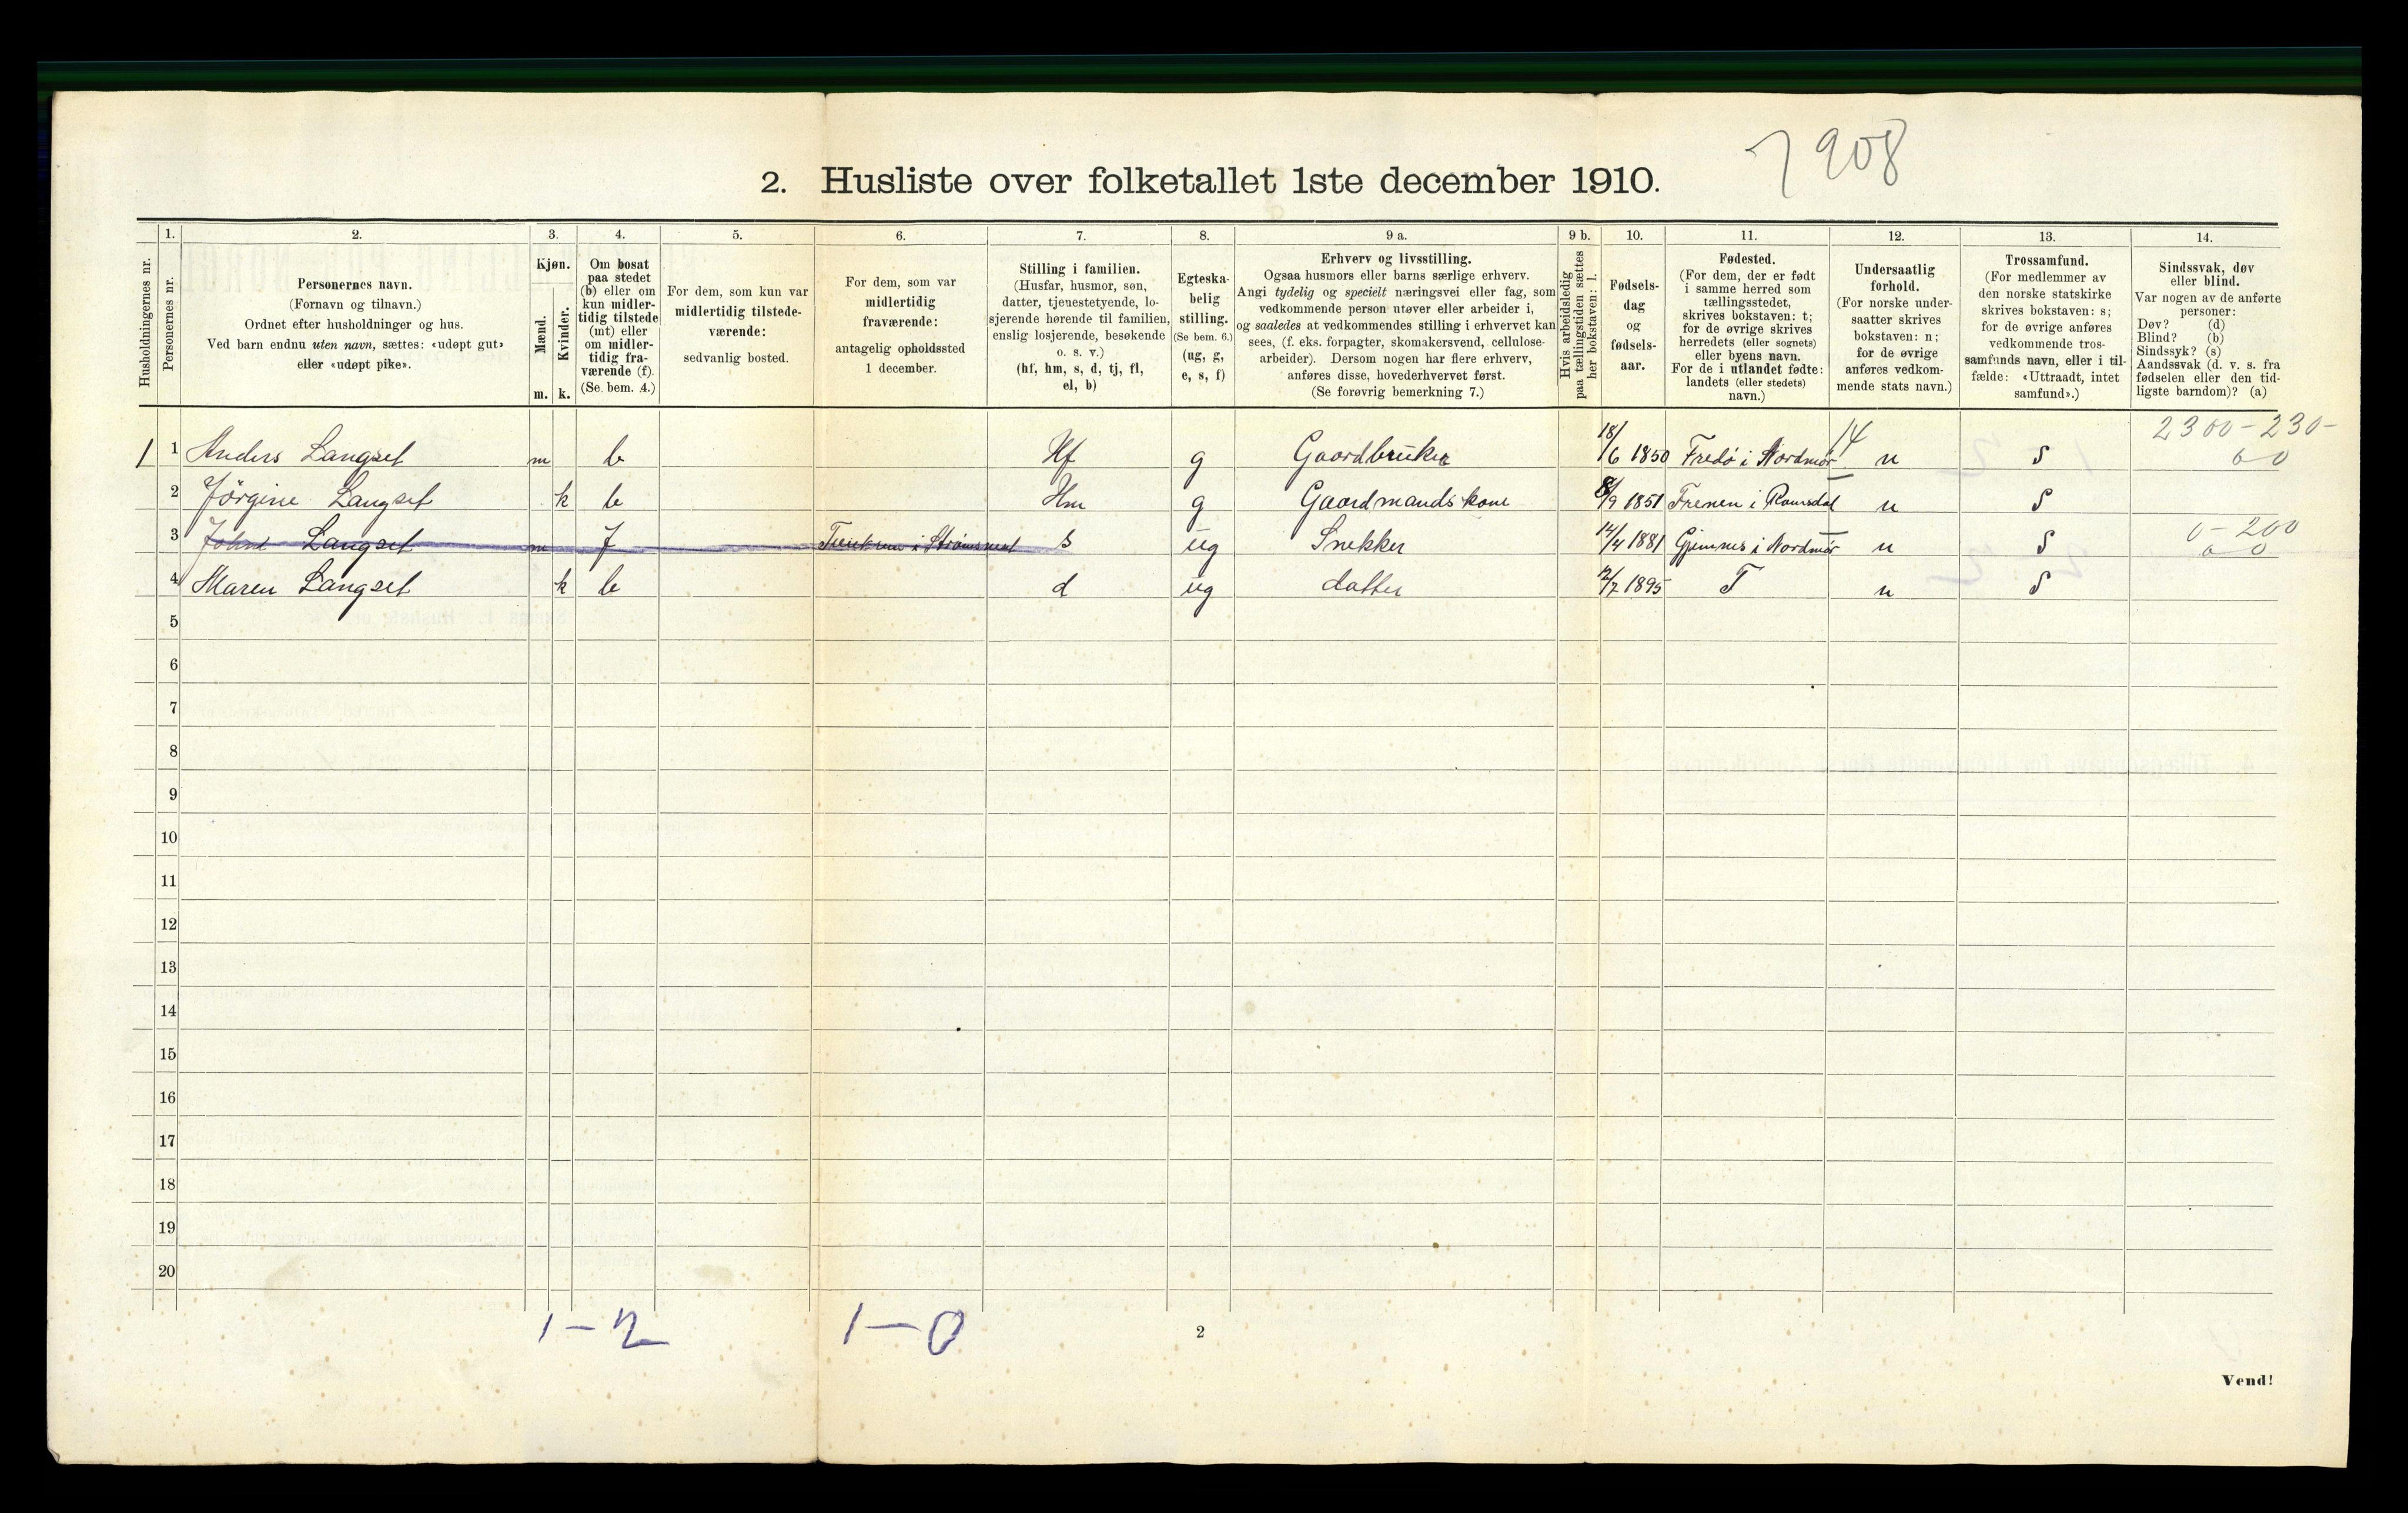 7908
2. Husliste over folketallet 1ste december 1910.
Husholdningernes nr.
1.
Personernes nr.
2.
Personernes navn.
(Fornavn og tilnavn.)
Ordnet efter husholdninger og hus.
Ved barn endnu uten navn, sættes: «udøpt gut»
eller «udøpt pike».
3.
Kjøn.
Mænd.
m.
Kvinder.
k.
4.
Om bosat
paa stedet
(b) eller om
kun midler-
tidig tilstede
(mt) eller
om midler-
tidig fra-
værende (f).
(Se bem. 4.)
5.
For dem, som kun var
midlertidig tilstede-
værende:
sedvanlig bosted.
6.
For dem, som var
midlertidig
fraværende:
antagelig opholdssted
1 december.
7.
Stilling i familien.
(Husfar, husmor, søn,
datter, tjenestetyende, lo-
sjerende hørende til familien,
enslig losjerende, besøkende
o. s. v.)
(hf, hm, s, d, tj, fl,
el, b)
8.
Egteska-
belig
stilling.
(Se bem. 6.)
(ug, g,
e, s, f)
9 a.
Erhverv og livsstilling.
Ogsaa husmors eller barns særlige erhverv.
Angi tydelig og specielt næringsvei eller fag, som
vedkommende person utøver eller arbeider i,
og saaledes at vedkommendes stilling i erhvervet kan
sees, (f. eks. forpagter, skomakersvend, cellulose-
arbeider). Dersom nogen har flere erhverv,
anføres disse, hovederhvervet først.
(Se forøvrig bemerkning 7.)
9 b.
Hvis arbeidsledig
paa tællingstiden sættes
her bokstaven: l.
10.
Fødsels-
dag
og
fødsels-
aar.
11.
Fødested.
(For dem, der er født
i samme herred som
tællingsstedet,
skrives bokstaven: t;
for de øvrige skrives
herredets (eller sognets)
eller byens navn.
For de i utlandet fødte:
landets (eller stedets)
navn.)
12.
Undersaatlig
forhold.
(For norske under-
saatter skrives
bokstaven: n;
for de øvrige
anføres vedkom-
mende stats navn.)
13.
Trossamfund.
(For medlemmer av
den norske statskirke
skrives bokstaven: s;
for de øvrige anføres
vedkommende tros-
samfunds navn, eller i til-
fælde: «Uttraadt, intet
samfund».)
14.
Sindssvak, døv
eller blind.
Var nogen av de anførte
personer:
Døv? (d)
Blind? (b)
Sindssyk? (s)
Aandssvak (d. v. s. fra
fødselen eller den tid-
ligste barndom)? (a)
14 2300-230-
1 1 Anders Langset m b Hf g Gaardbruker 18/6 1850 Fredö i Nordmör n S 60
2 Jörgine Langset k b Hm g Gaardmandskone 8/9 1851 Frenen i Romsdal n S
0-200
3 Johan Langset m f s ug Snekker 14/4 1881 Gjemnes i Nordmör n S 0 0
4 Maren Langset k b d ug datter 12/7 1895 T n S
5
6
7
8
9
10
11
12
13
14
15
16
17
18
19
20
1-2 1-0
2
Vend!